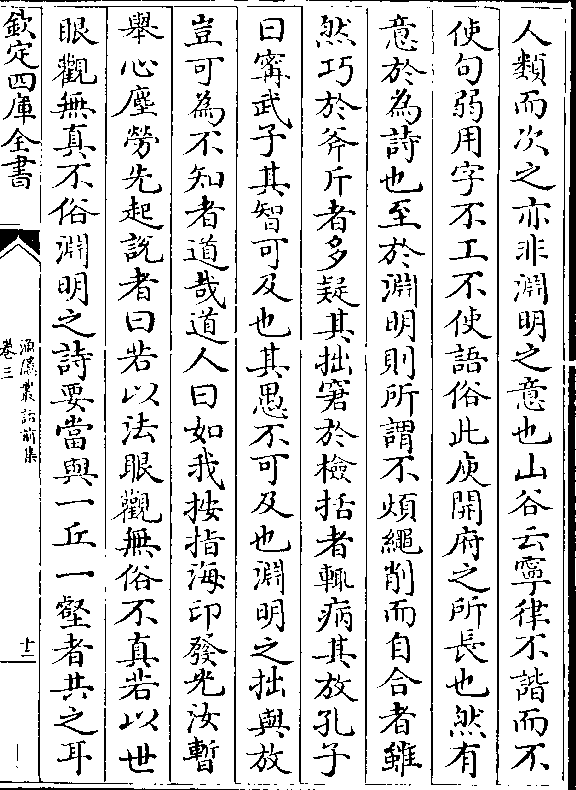 人類而次之亦非淵明之意也山谷云寧律不諧而不
使句弱用字不工不使語俗此庾開府之所長也然有
意於為詩也至於淵明則所謂不煩繩削而自合者雖
然巧於斧斤者多疑其拙窘於檢括者輒病其放孔子
曰甯武子其智可及也其愚不可及也淵明之拙與放
豈可為不知者道哉道人曰如我按指海印發光汝暫
舉心塵勞先起說者曰若以法眼觀無俗不真若以世
眼觀無真不俗淵明之詩要當與一丘一壑者共之耳
欽定四庫全書
漁隱叢話前集
卷三
十二